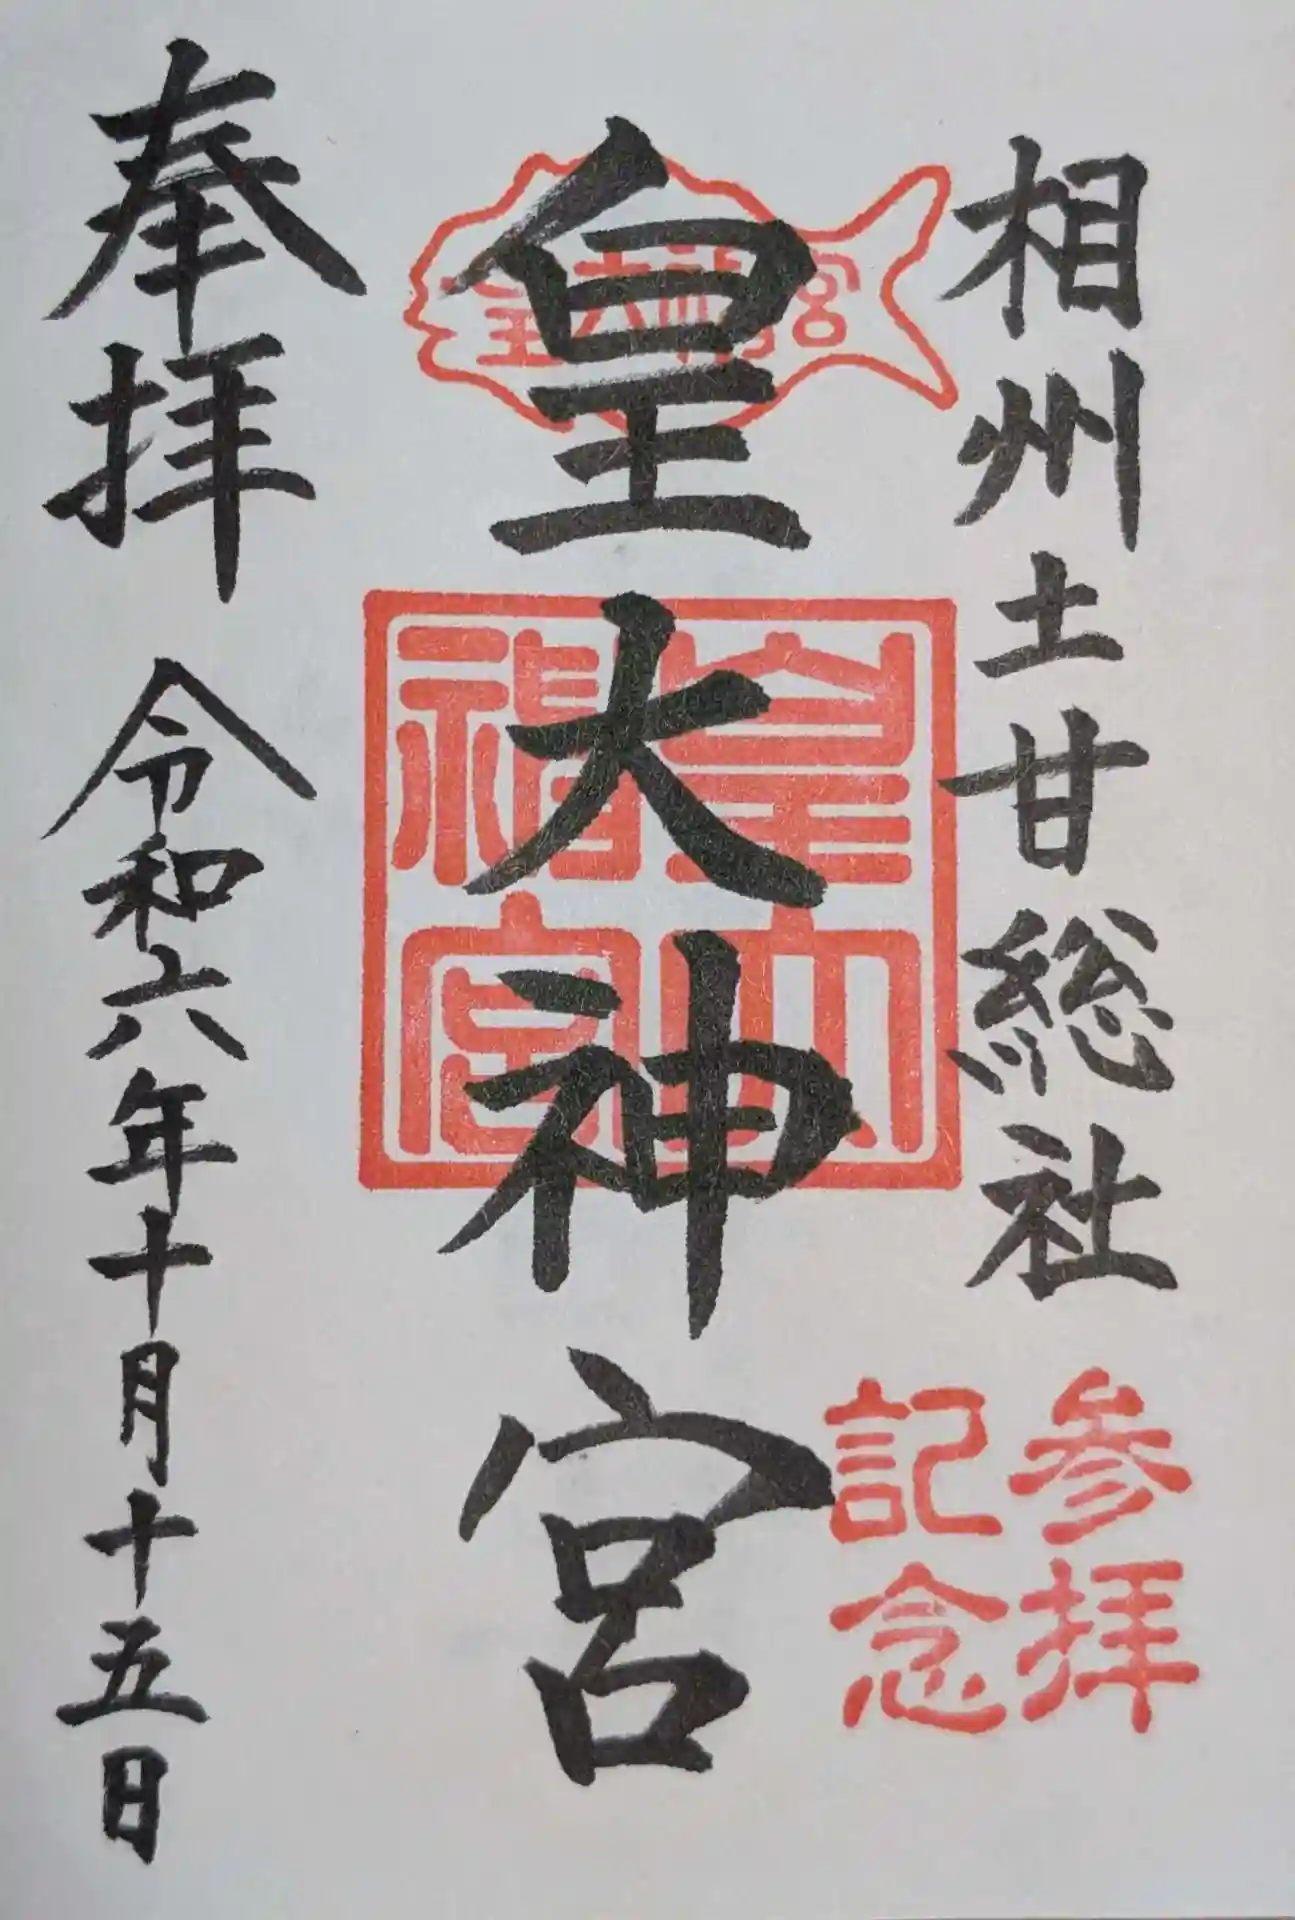 相州土甘総社
参拝
記念
皇大神宮
皇大神宮
皇大神宮
奉拝
令和六年十月十五日